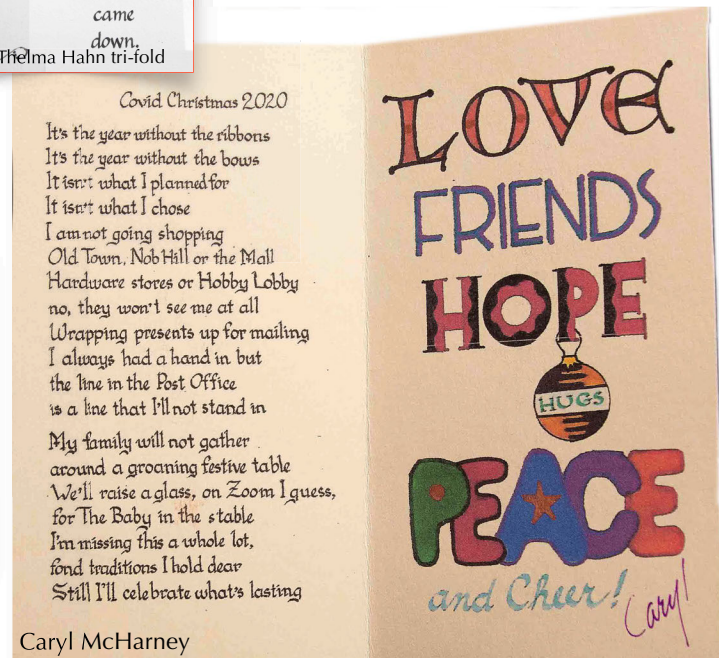 came
down.
Thelma Hahn tri-fold
Covid Christmas 2020
It's the year without the ribbons
It's the year without the bows
It isn't what I planned for
It isn't what I chose
I am not going shopping
Old Town, Nob Hill or the Mall
Hardware stores or Hobby Lobby
no, they won't see me at all
Wrapping presents up for mailing
I always had a hand in but
the line in the Post Office
is a line that I'll not stand in
My family will not gather
around a groaning festive table
We'll raise a glass, on Zoom I guess,
for The Baby in the stable
I'm missing this a whole lot,
fond traditions I hold dear
Still I'll celebrate what's lasting
Caryl McHarney
LOVE
FRIENDS
HOPE
HUGS
PEACE
and Cheer!
Caryl